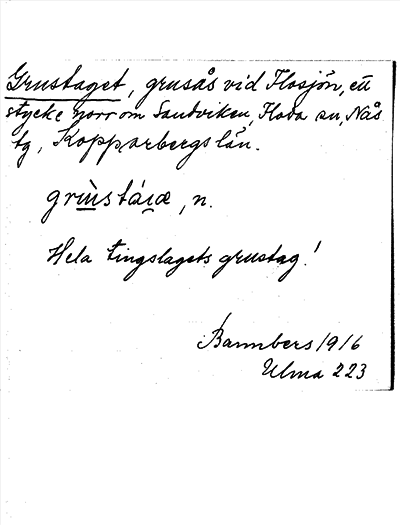 Grustaget, grusås vid Flosjön, ett
stycke norr om Sandviken, Floda sn, Nås
tg, Kopparbergs län.
grùstáıæ, n.
Hela tingslagets grustag!
Bannbers 1916
Ulma 223